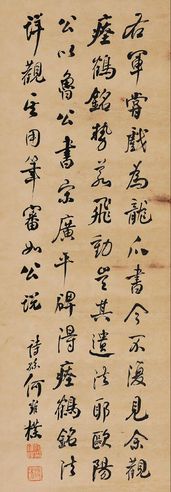 右軍嘗戲為龍爪書今不復見余觀
瘞鶴銘勢若飛動豈其遺法耶歐陽
公以魯公書宋廣平碑得瘞鶴銘法
詳觀其用筆審如公說
詩孫何維樸